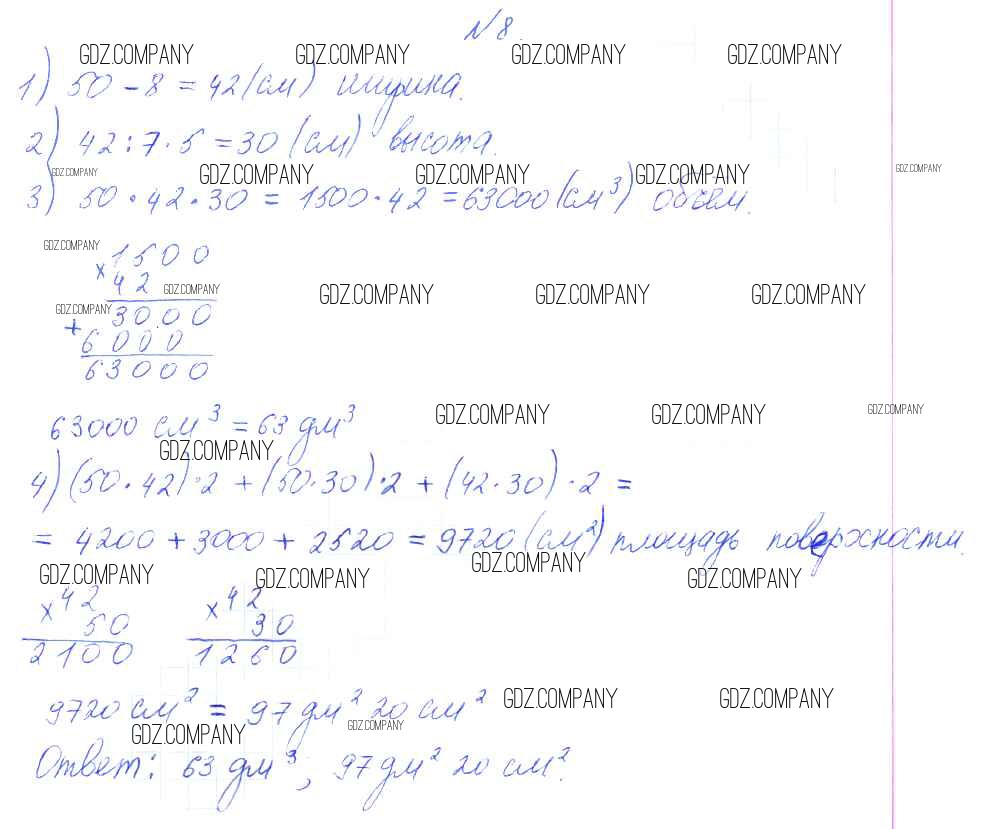 № 8.
GDZ.COMPANY GDZ.COMPANY GDZ.COMPANY GDZ.COMPANY
1) 50 - 8 = 42 (см) ширина.
2) 42 : 7 · 5 = 30 (см) высота.
GDZ.COMPANY GDZ.COMPANY GDZ.COMPANY GDZ.COMPANY GDZ.COMPANY
3) 50 · 42 · 30 = 1500 · 42 = 63000 (см³) объем.
GDZ.COMPANY
× 1500
42 GDZ.COMPANY
GDZ.COMPANY GDZ.COMPANY GDZ.COMPANY
GDZ.COMPANY 3000
+ 6000
63000
GDZ.COMPANY GDZ.COMPANY GDZ.COMPANY
63000 см³ = 63 дм³
GDZ.COMPANY
4) (50 · 42) · 2 + (50 · 30) · 2 + (42 · 30) · 2 =
= 4200 + 3000 + 2520 = 9720 (см²) площадь поверхности.
GDZ.COMPANY GDZ.COMPANY GDZ.COMPANY GDZ.COMPANY
× 42 × 42
50 30
2100 1260
GDZ.COMPANY GDZ.COMPANY
9720 см² = 97 дм² 20 см²
GDZ.COMPANY GDZ.COMPANY
Ответ: 63 дм³; 97 дм² 20 см².